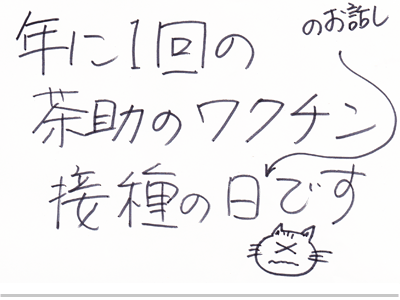 年に1回の
茶助のワクチン
接種の日です
のお話し